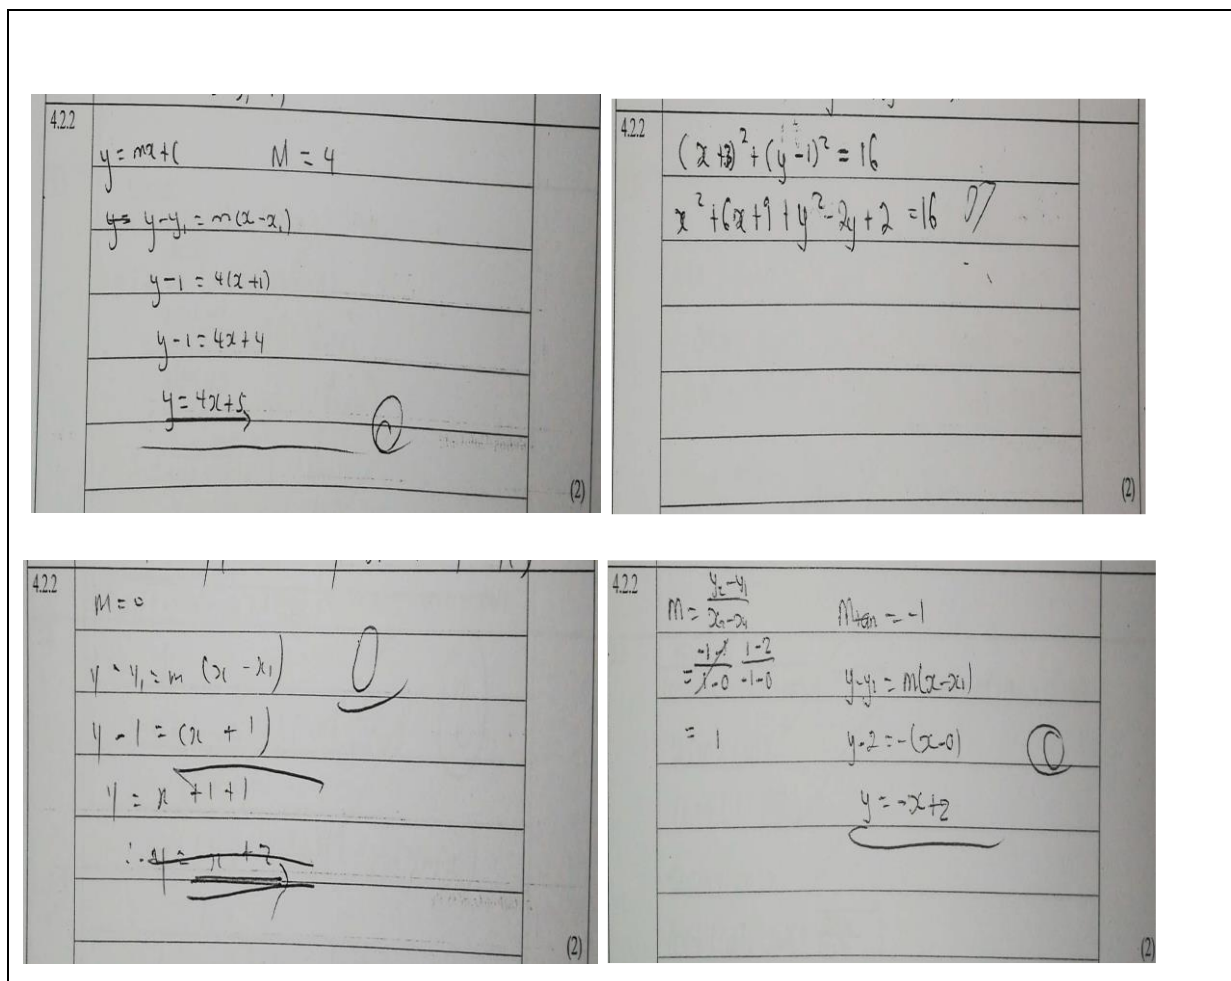 4.2.2
y = mx + c M = 4
y - y₁ = m(x - x₁)
y - 1 = 4(x + 1)
y - 1 = 4x + 4
y = 4x + 5
0
(2)
4.2.2
(x + 3)² + (y - 1)² = 16
x² + 6x + 9 + y² - 2y + 2 = 16 0
(2)
4.2.2
M = 0
y - y₁ = m (x - x₁) 0
y - 1 = (x + 1)
y = x + 1 + 1
∴ y = x + 2
(2)
4.2.2
M = y₂ - y₁ / x₂ - x₁ Mtan = -1
= 1 - 2 / -1 - 0 y - y₁ = m(x - x₁)
= 1 y - 2 = -(x - 0) 0
y = -x + 2
(2)